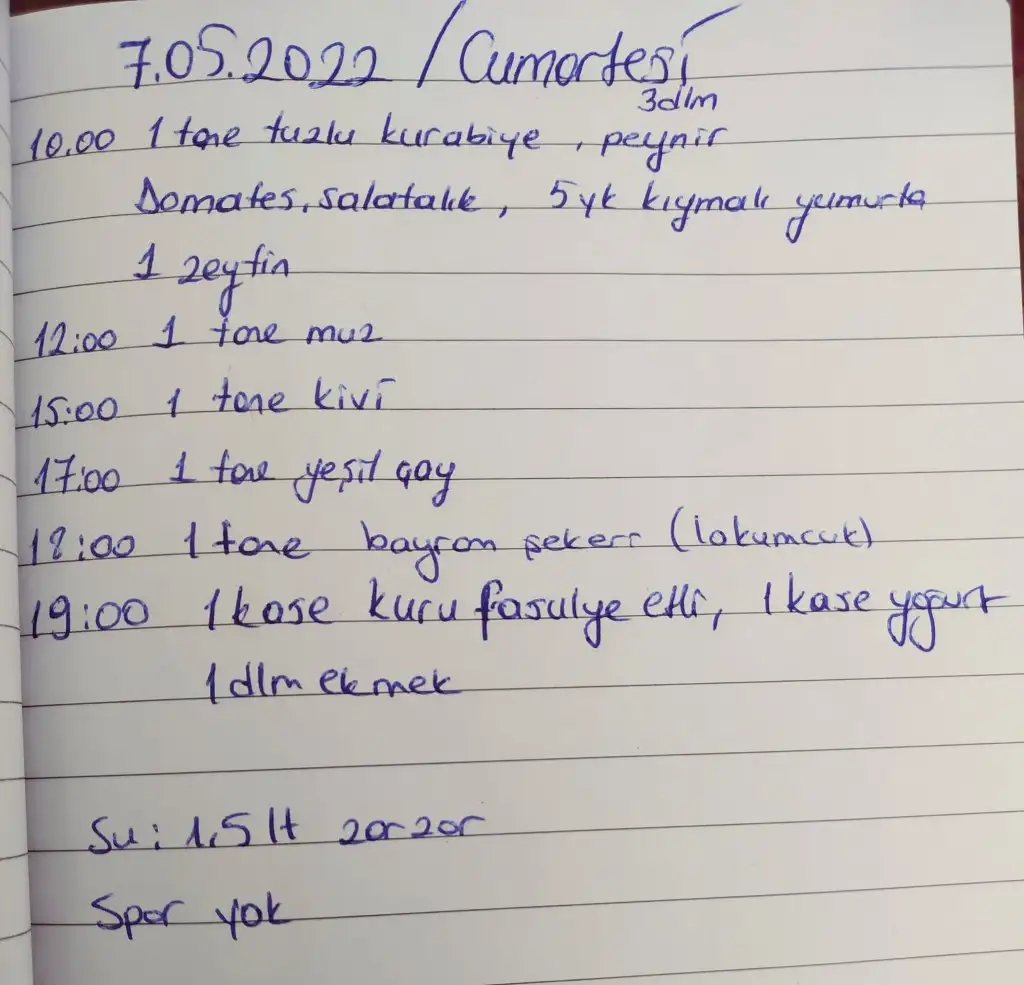 7.05.2022 / Cumartesi
3dlm
10.00 1 tane tuzlu kurabiye , peynir
Domates, salatalık , 5 yk kıymalı yumurta
1 zeytin
12:00 1 tane muz
15:00 1 tane kivi
17:00 1 tane yeşil çay
18:00 1 tane bayram şekeri (lokumcuk)
19:00 1 kase kuru fasulye etli, 1 kase yoğurt
1 dlm ekmek
Su : 1,5 lt zor zor
Spor yok